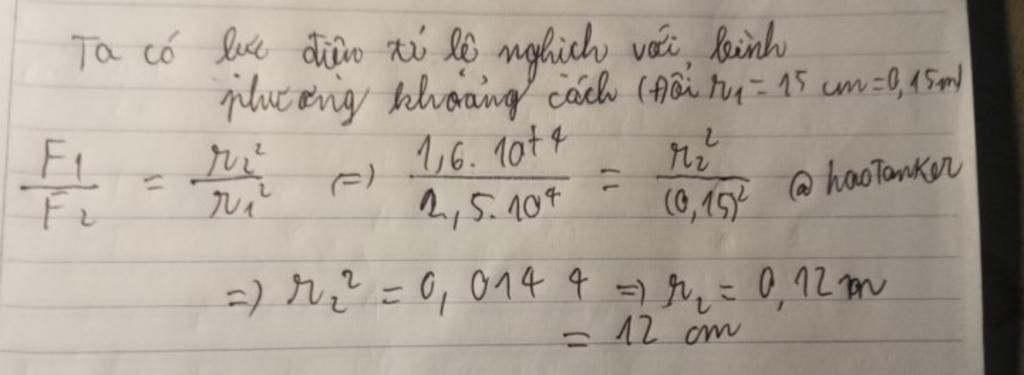 Ta có lực điện tỉ lệ nghịch với bình
phương khoảng cách (Đổi r₁ = 15 cm = 0,15m)
F₁/F₂ = r₂²/r₁² => 1,6.10⁺⁴/2,5.10⁴ = r₂²/(0,15)² @haoTanker
=> r₂² = 0,0144 => r₂ = 0,12 m
= 12 cm